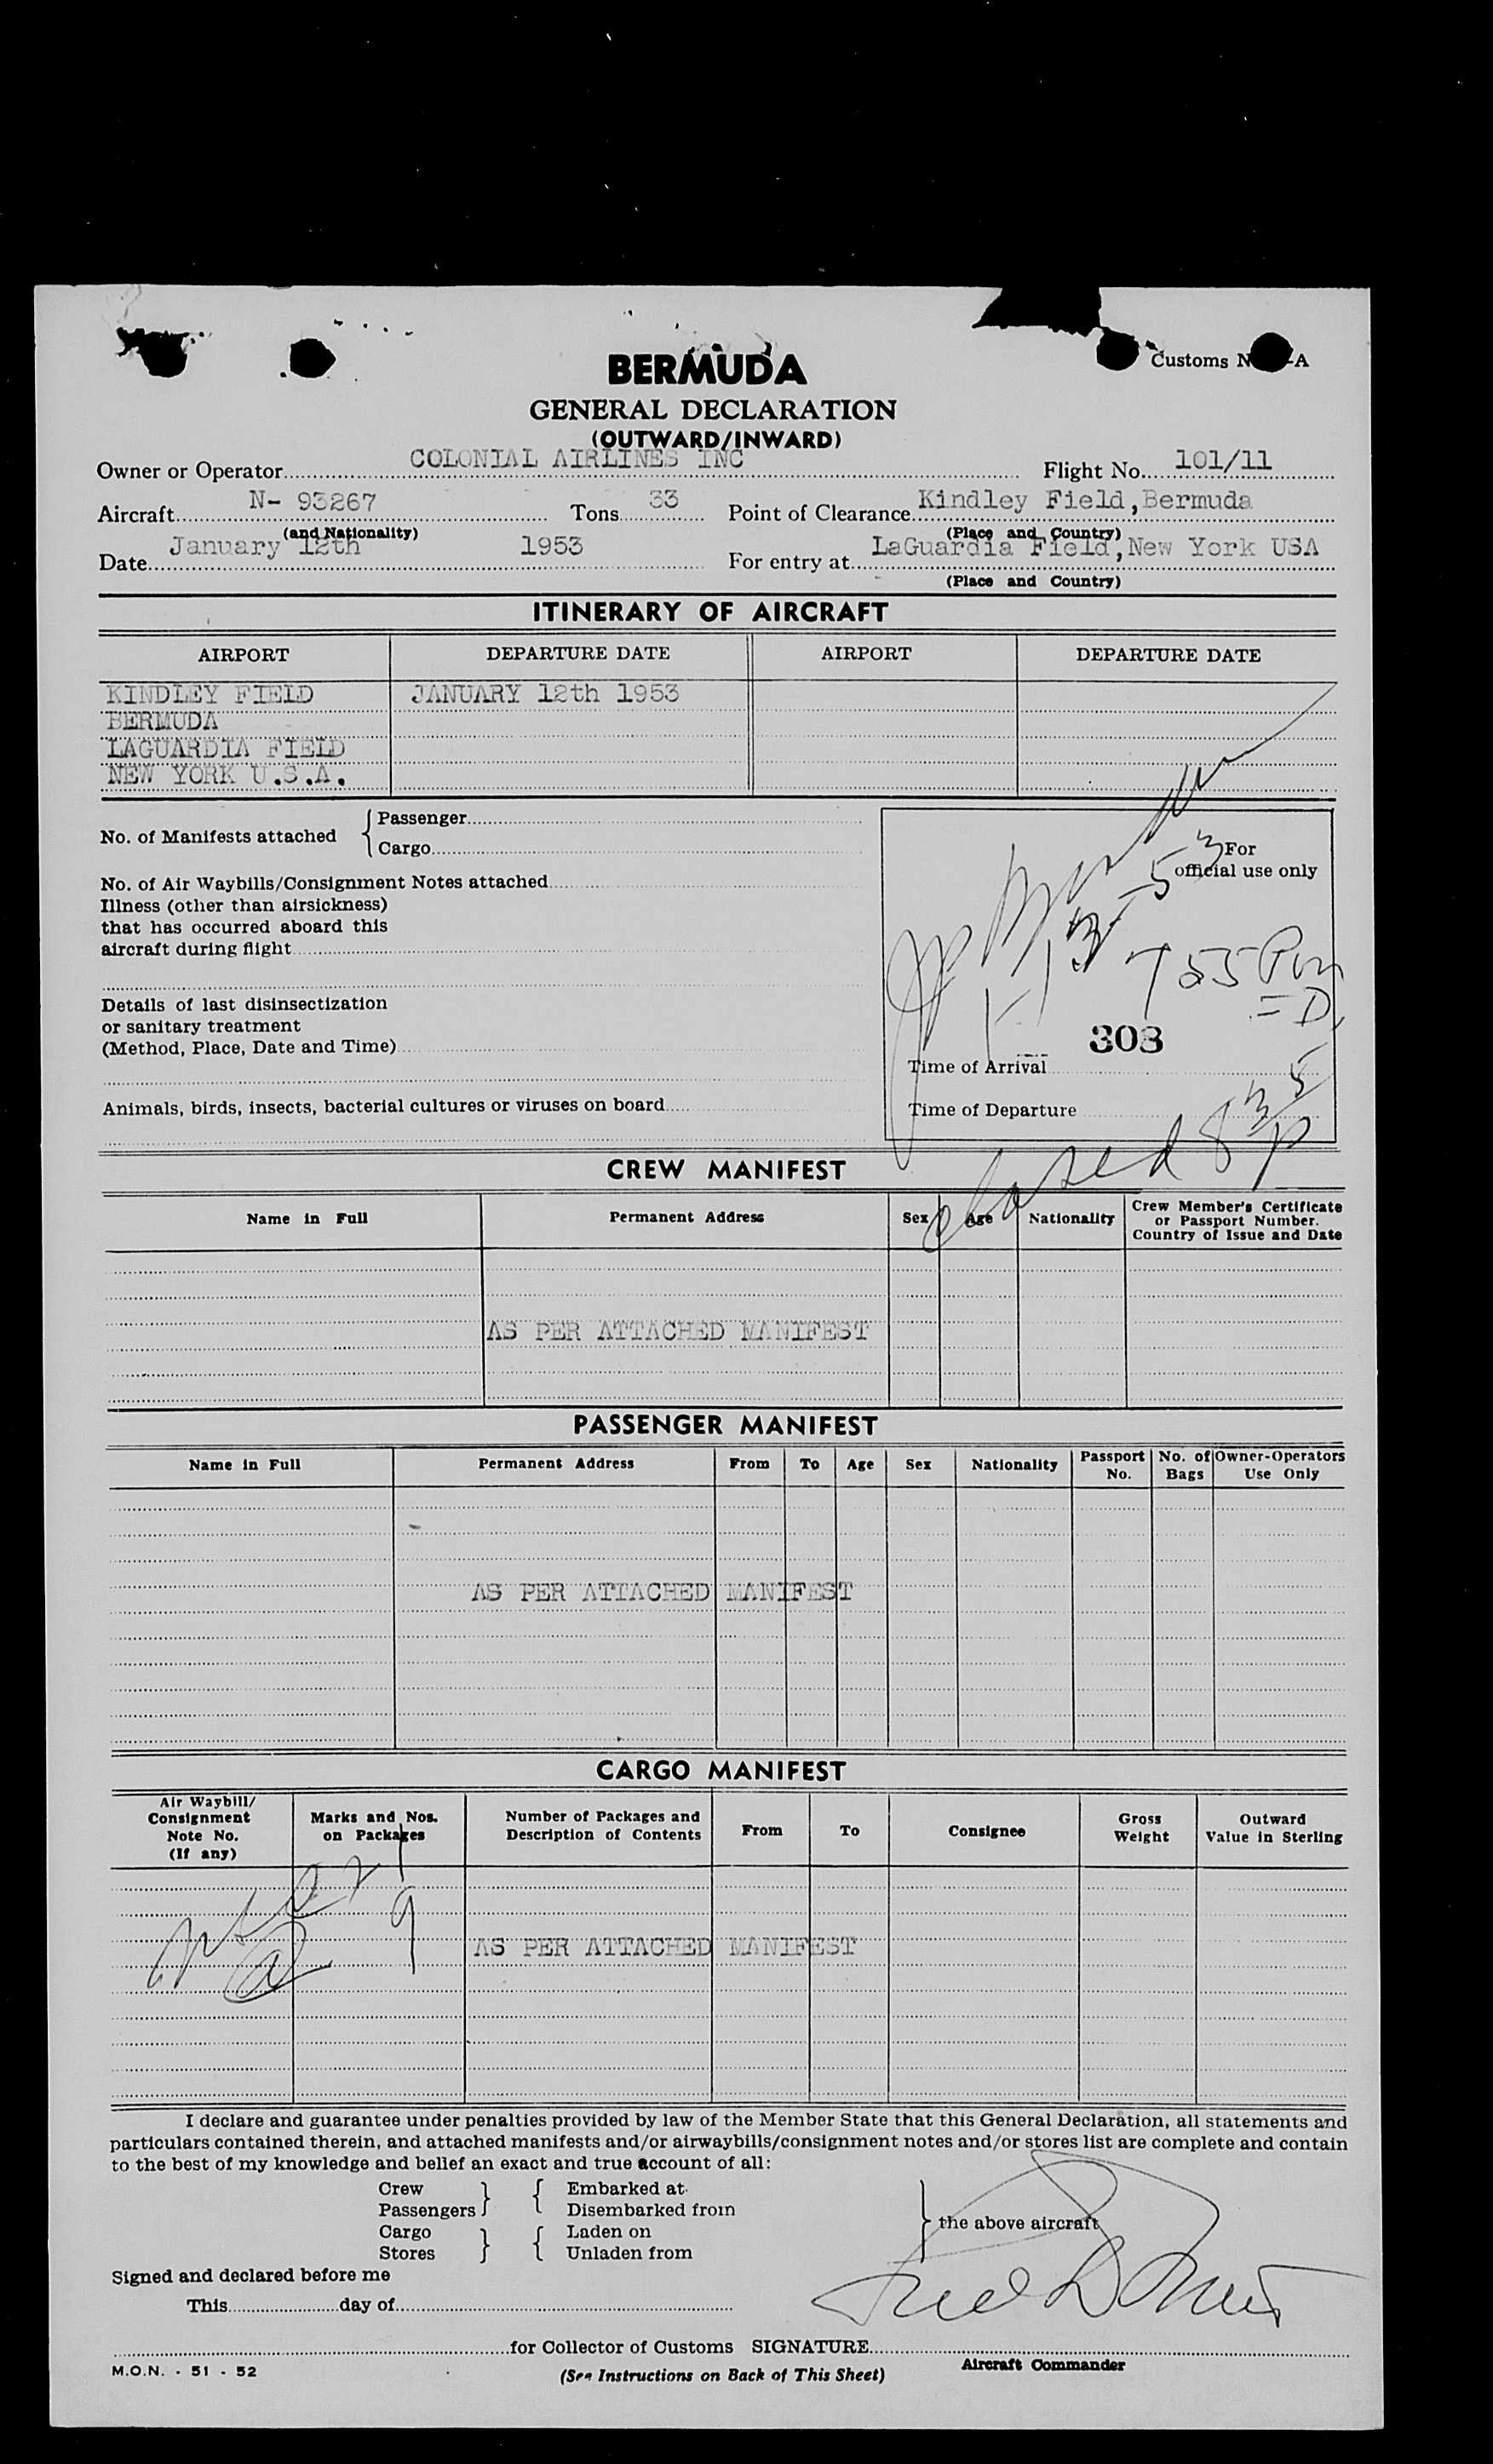 Customs N -A
BERMUDA
GENERAL DECLARATION
(OUTWARD/INWARD)
Owner or Operator COLONIAL AIRLINES INC Flight No. 101/11
Aircraft N- 93267 Tons 33 Point of Clearance Kindley Field, Bermuda
(and Nationality) (Place and Country)
Date January 12th 1953 For entry at LaGuardia Field, New York USA
(Place and Country)
ITINERARY OF AIRCRAFT
AIRPORT DEPARTURE DATE AIRPORT DEPARTURE DATE
KINDLEY FIELD JANUARY 12th 1953
BERMUDA
LAGUARDIA FIELD
NEW YORK U.S.A.
No. of Manifests attached { Passenger
Cargo
No. of Air Waybills/Consignment Notes attached
Illness (other than airsickness)
that has occurred aboard this
aircraft during flight
Details of last disinsectization
or sanitary treatment
(Method, Place, Date and Time)
Animals, birds, insects, bacterial cultures or viruses on board
For
official use only
755 Pm
= D,
303
Time of Arrival
Time of Departure
closed 8 35 P
CREW MANIFEST
Name in Full Permanent Address Sex Age Nationality Crew Member's Certificate
or Passport Number.
Country of Issue and Date
AS PER ATTACHED MANIFEST
PASSENGER MANIFEST
Name in Full Permanent Address From To Age Sex Nationality Passport No. No. of Bags Owner-Operators Use Only
AS PER ATTACHED MANIFEST
CARGO MANIFEST
Air Waybill/
Consignment
Note No.
(If any)
Marks and Nos.
on Packages
Number of Packages and
Description of Contents
From To Consignee
Gross
Weight
Outward
Value in Sterling
AS PER ATTACHED MANIFEST
I declare and guarantee under penalties provided by law of the Member State that this General Declaration, all statements and
particulars contained therein, and attached manifests and/or airwaybills/consignment notes and/or stores list are complete and contain
to the best of my knowledge and belief an exact and true account of all:
Crew } { Embarked at
Passengers Disembarked from
Cargo } { Laden on } the above aircraft
Stores Unladen from
Signed and declared before me
This day of
for Collector of Customs SIGNATURE
Aircraft Commander
M.O.N. - 51 - 52
(See Instructions on Back of This Sheet)